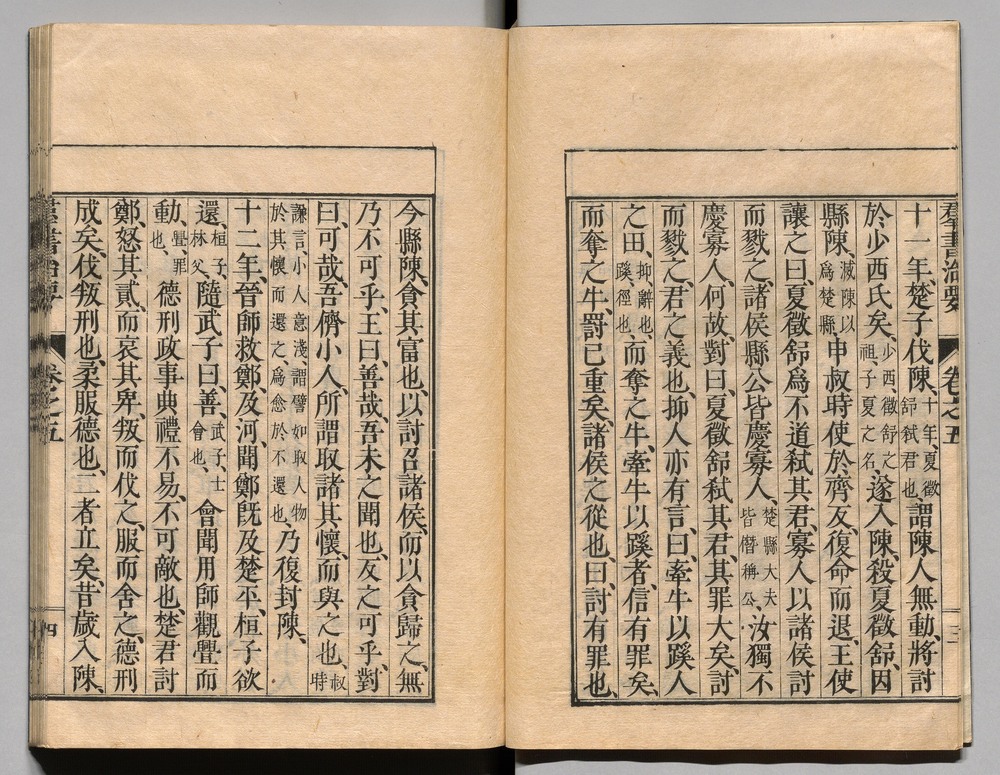 群書治要 卷之五 三
十一年楚子伐陳、十年夏徵舒弒君也、謂陳人無動、將討
於少西氏矣、少西、徵舒之祖、子夏之名、遂入陳、殺夏徵舒、因
縣陳、滅陳以爲楚縣、申叔時使於齊、反、復命而退、王使
讓之曰、夏徵舒爲不道、弒其君、寡人以諸侯討
而戮之、諸侯縣公皆慶寡人、楚縣大夫皆僭稱公、汝獨不
慶寡人、何故、對曰、夏徵舒弒其君、其罪大矣、討
而戮之、君之義也、抑人亦有言、曰、牽牛以蹊人
之田、抑、辭也、蹊、徑也、而奪之牛、牽牛以蹊者、信有罪矣、
而奪之牛、罰已重矣、諸侯之從也、曰、討有罪也、
今縣陳、貪其富也、以討召諸侯、而以貪歸之、無
乃不可乎、王曰、善哉、吾未之聞也、反之可乎、對
曰、可哉、吾儕小人、所謂取諸其懷、而與之也、叔時
謙言小人意淺、謂譬如取人物於其懷而還之、爲愈於不還也、乃復封陳、
十二年、晉師救鄭、及河、聞鄭旣及楚平、桓子欲
還、桓子、林父、隨武子曰、善、武子、士會也、會聞用師觀釁而
動、釁、罪也、德刑政事、典禮不易、不可敵也、楚君討
鄭、怒其貳、而哀其卑、叛而伐之、服而舍之、德刑
成矣、伐叛刑也、柔服德也、二者立矣、昔歲入陳、
群書治要 卷之五 四